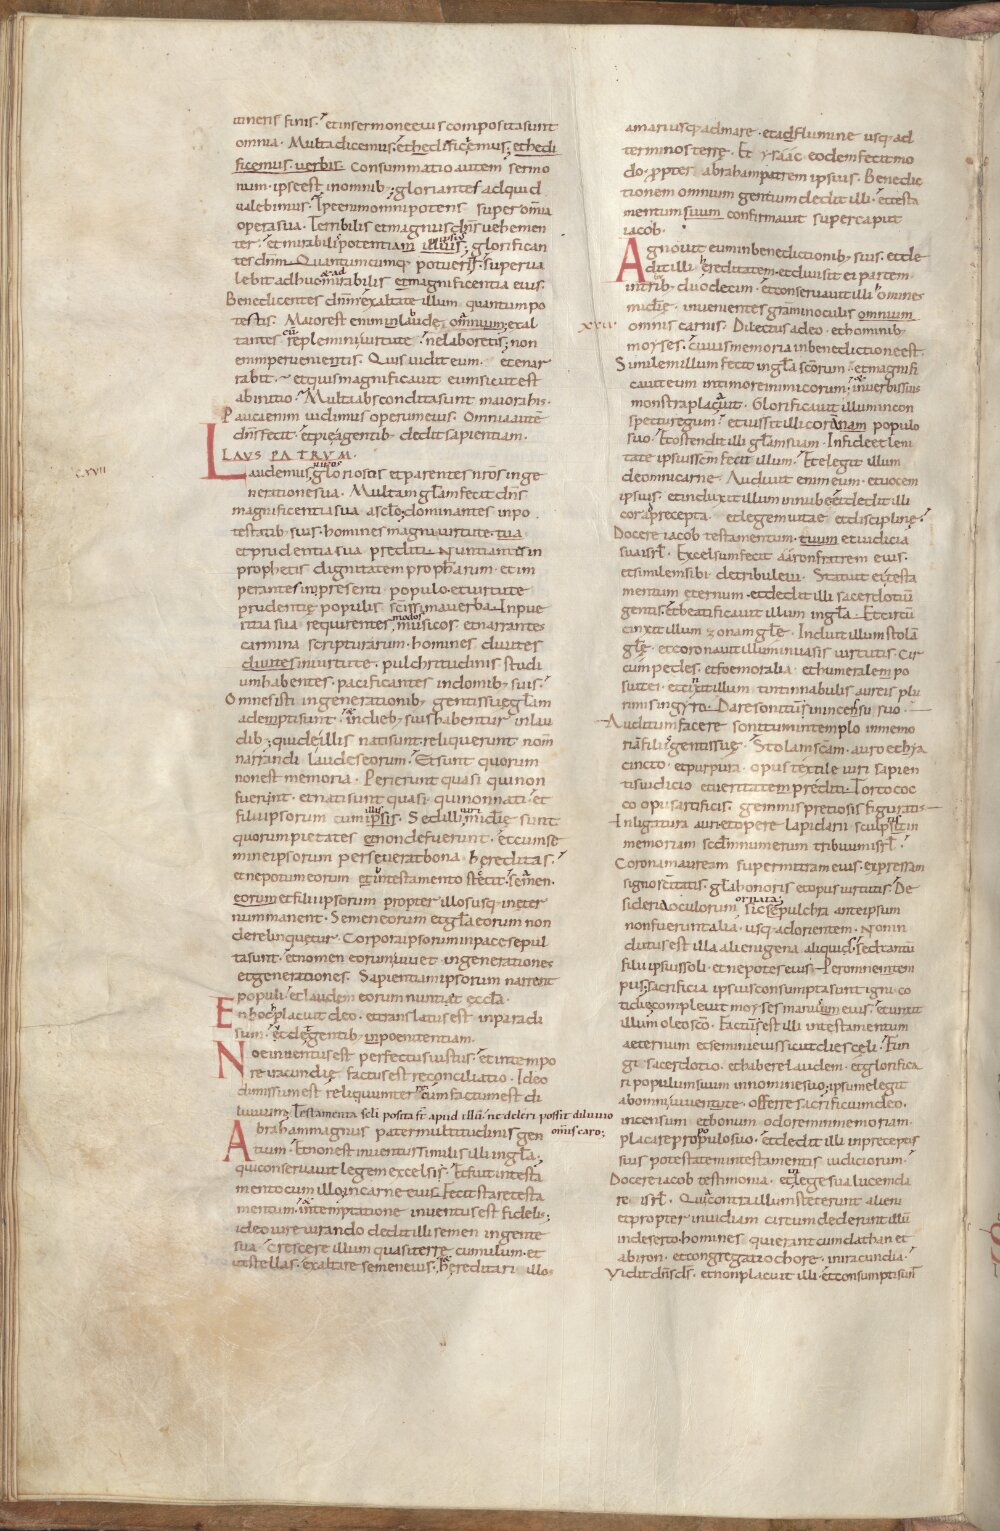 itineris finis. et insermone eius composita sunt
omnia. Multa dicemus. et hędificemus. et hedi
ficemus uerbis. Consummatio autem sermo
num. ipse est inomnib; gloriantes ad quid
ualebimus. Ipse enim omnipotens super omia
opera sua. Terribilis et magnus dns uehemen
ter. et mirabilis potentiam illius; glorifican
tes dnm. Quantumcumq; potueris. superua
lebit adhuc mirabilis et magnificentia eius.
Benedicentes dnm exaltate illum quantum po
testis. Maior est enim inlaude. omnium; exal
tantes repleminiuirtute. nelaboretis; non
enim peruenientis. Quis uidit eum. et enar
rabit. et quis magnificauit eum sicut est
abinitio. Multa abscondita sunt maiora his.
Pauca enim uidimus operum eius. Omnia aute
dns fecit. et pie agentib; dedit sapientiam.
LAUS PATRUM.
cxvii
Laudemus uiros gloriosos et parentes nros inge
neratione sua. Multam glam fecit dns
magnificentia sua asclo; dominantes inpo
testatib; suis. homines magni uirtute. tua
et prudentia sua prediti. Nuntiantes in
prophetis dignitatem propharum. et im
perantes inpresenti populo. et uirtute
prudentię populis scissima uerba. Inpue
ritia sua requirentes modos musicos. et narrantes
carmina scripturarum. homines diuites
diuites inuirtute. pulchritudinis studi
um habentes. pacificantes indomib; suis.
Omnes isti ingenerationib; gentis suę glam
adempti sunt. indieb; suis habentur inlau
dib; qui deillis nati sunt. reliquerunt nom
narrandi laudes eorum. Et sunt quorum
non est memoria. Perierunt quasi qui non
fuerint. et nati sunt quasi quinonnati. et
filii ipsorum cum ipsis. Sed illi uiri midię sunt
quorum pietates et nondefuerunt. et cum se
mine ipsorum perseuerat bona. hereditas.
et nepotum eorum et intestamento stetit. semen.
eorum et filii ipsorum propter illos usq; ineter
num manent. Semen eorum et gla eorum non
derelinquetur. Corpora ipsorum inpace sepul
ta sunt. et nomen eorum uiuet ingenerationes
et generationes. Sapientiam ipsorum narrent
populi. et laudem eorum nuntiat eccla.
Enhoc placuit deo. et translatus est inparadi
sum. et det gentib; inpoenitentiam.
Noe inuentus est perfectus iustus. et intempo
re iracundię factus est reconciliatio. Ideo
dimissum est reliquum terrę cum factum est di
luuium; Testamenta scli posita st apud illu. ne deleri possit diluuio
omis caro;
Abraham magnus pater multitudinis gen
tium. Et non est inuentus similis illi ingla.
qui conseruauit legem excelsi. Et fuit intesta
mento cum illo. incarne eius fecit stare testa
mentum. intemptatione inuentus est fidelis;
ideo iure iurando dedit illi semen ingente
sua. Crescere illum quasi terrę cumulum. et
ut stellas. exaltare semen eius. hereditari illo
amari usq; admare. et adflumine usq; ad
terminos terrę. Et ysaac eodem fecit mo
do. propter abraham patrem ipsius. Benedic
tionem omnium gentium dedit illi. et testa
mentum suum confirmauit super caput
iacob.
Agnouit eum inbenedictionib; suis. et de
dit illi hereditatem. et diuisit ei partem
intrib; duodecim. et conseruauit illi homines
midię. inuenientes gram inoculis omnium
xxiiv omnis carnis. Dilectus adeo. et hominib;
moyses. cuius memoria inbenedictione est.
Similem illum fecit ingla scorum. et magnifi
cauit eum intimore inimicorum. inuerbis suis
monstra placauit. Glorificauit illum incon
spectu regum. et iussit illi coram populo
suo. Et ostendit illi glam suam. Infide et leni
tate ipsius scm fecit illum. Et elegit illum
deomni carne. Audiuit enim eum. et uocem
ipsius. et induxit illum innube. et dedit illi
cora precepta. et legem uitae et disciplinę.
Docere iacob testamentum. suum et iudicia
sua isrl. Excelsum fecit aaron fratrem eius.
et similem sibi detribu leui. Statuit ei testa
mentum eternum. et dedit illi sacerdotiu
gentis. et beatificauit illum ingla. Et circu
cinxit illum zonam glę. Induit illum stola
glę. et coronauit illum inuasis uirtutis. Cir
cum pedes. et foemoralia. et humeralem po
suit ei. et cinxit illum tintinnabulis aureis plu
rimis ingyro. Dare sonitum inincensu suo.
Auditum facere sonitum intemplo inmemo
ria filiis gentis suę. Stolam scam. auro et hia
cincto. et purpura. opus textile uiri sapien
tis. iudicio et ueritatem prediti. Torto coc
co opus artificis. gemmis pretiosis figuratis
Inligatura auri. et opere lapidarii sculptis. in
memoriam scdm numerum tribuum isrl.
Coronam auream super mitram eius. expressam
signo scitatis. gla honoris et opus uirtutis. De
sideria oculorum ornata; sic se pulchra ante ipsum
non fuerunt alia. usq; ad orientem. Non in
dutus est illa alienigena aliquis. sed tantu
filii ipsius soli. et nepotes eius. Per omne tem
pus; sacrificia ipsius consumpta sunt igni. co
tidie compleuit moyses manum eius. et unxit
illum oleo sco. Factum est illi intestamentum
aeternum et semini eius sicut dies cęli. Fun
gi sacerdotio. et habere laudem. et glorifica
ri populum suum innomine suo; ipsum elegit
abomni iuuentute. offerre sacrificium deo.
incensum et bonum odorem inmemoriam.
placare propopulo suo. et dedit illi inpreceptis
suis potestatem intestamentis iudiciorum.
Docere iacob testimonia. et in lege sua lucem da
re isrl. Quia contra illum steterunt alieni
et propter inuidiam circum dederunt illu
indeserto. homines qui erant cum dathan et
abiron. et congregatio chore. iniracundia.
Vidit dns ds. et non placuit illi. et consumpti sun